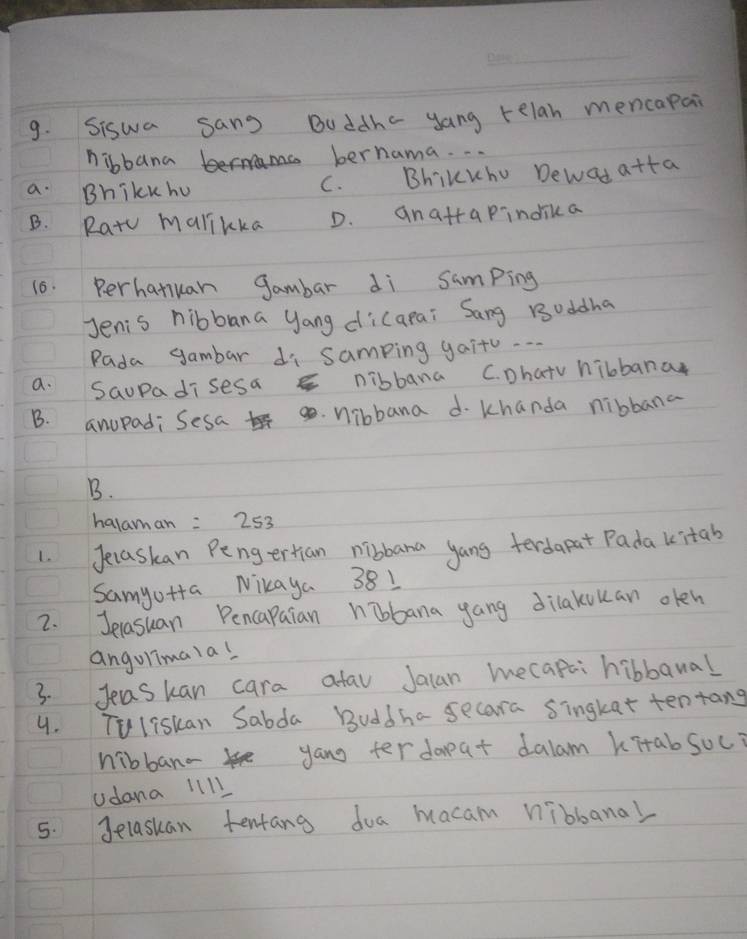 9. Siswa Sang Buddha yang telah mencapai
nibbana bernama...
a. Bhikkhu C. Bhikkhu Dewadatta
B. Ratu Marikka D. anattapindika
10. Perhatikan gambar di samping
Jenis nibbana yang dicapai Sang Buddha
Pada gambar di samping yaitu...
a. Saupadisesa nibbana C. Dhatu nibbana
B. anupadi Sesa nibbana d. Khanda nibbana
B.
halaman: 253
1. Jelaskan Pengertian nibbana yang terdapat Pada kitab
Samyutta Nikaya 38!
2. Jelaskan Pencapaian nibbana yang dilakukan oleh
angulimala!
3. Jeaskan cara atau Jalan mecapai nibbana!
4. Tuliskan Sabda Buddha secara singkat tentang
nibbana yang terdapat dalam kitab suci
udana !!!!
5. Jelaskan tentang dua macam nibbana!